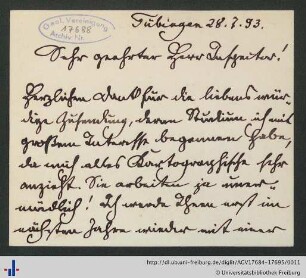 Geol. Vereinigung
17688
Archiv Nr.
Tübingen 28.7.93.
Sehr geehrter Herr Inspektor!
Herzlichen Dank für die liebenswür-
dige Zusendung, deren Studium ich mit
großem Interesse begonnen habe,
da mich altes Kartographische sehr
anzieht. Sie arbeiten ja uner-
müdlich! Ich werde Ihnen erst im
nächsten Jahre wieder mit einer
http://dl.ub.uni-freiburg.de/diglit/AGV17684-17695/0011
Universitätsbibliothek Freiburg